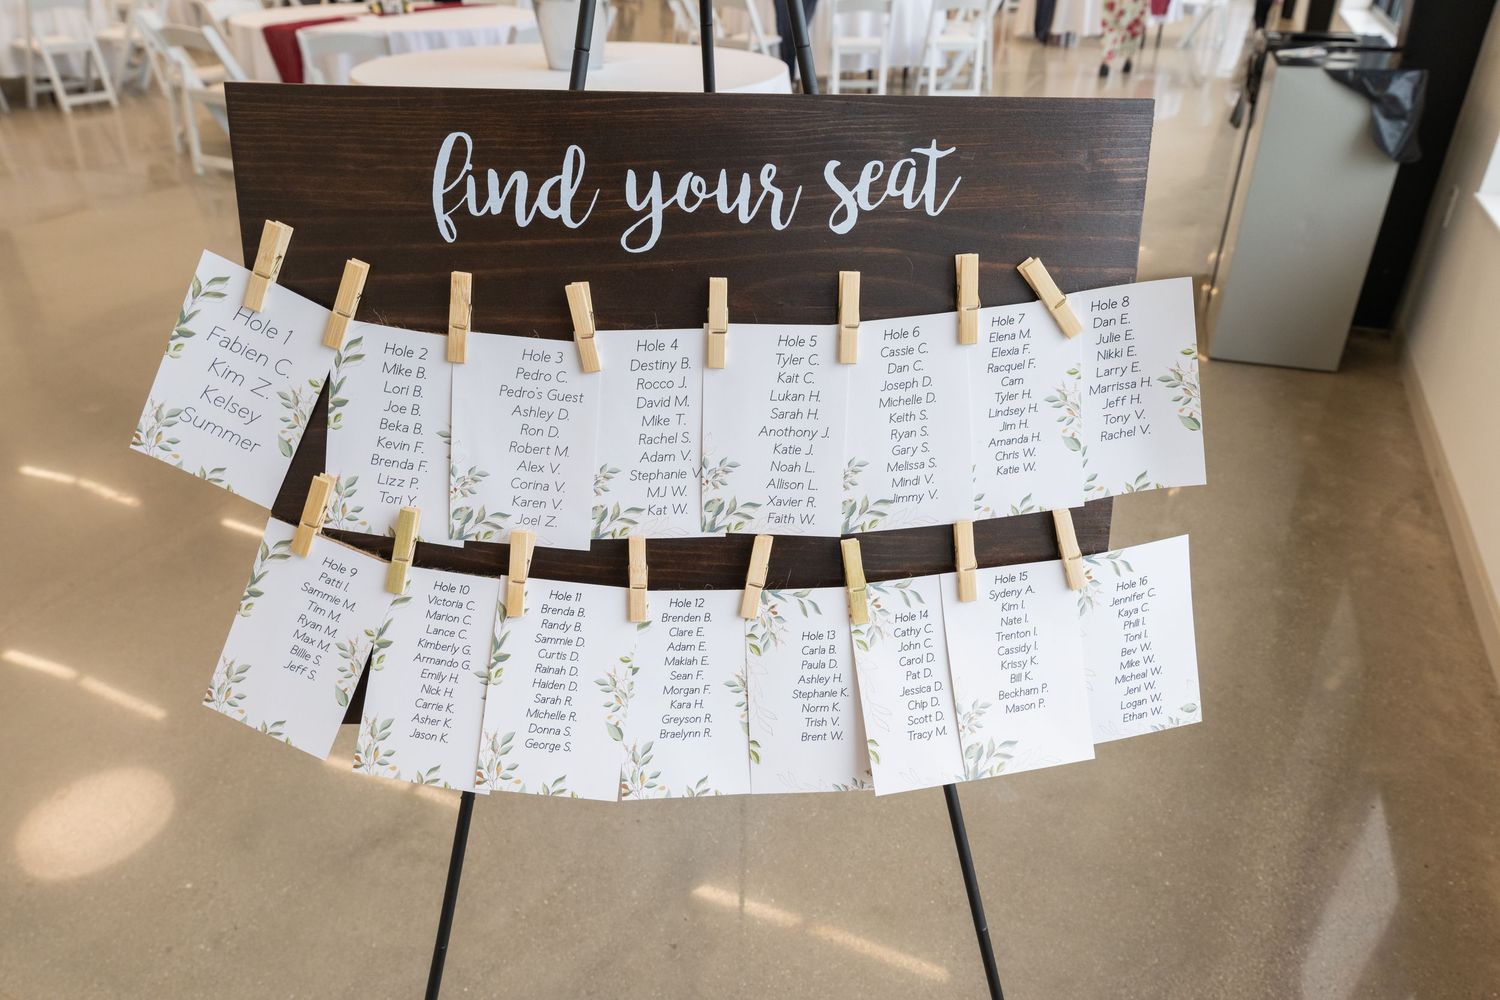 find your seat
Hole 1
Fabien C.
Kim Z.
Kelsey
Summer
Hole 2
Mike B.
Lori B.
Joe B.
Beka B.
Kevin F.
Brenda F.
Lizz P.
Tori Y.
Hole 3
Pedro C.
Pedro's Guest
Ashley D.
Ron D.
Robert M.
Alex V.
Corina V.
Karen V.
Joel Z.
Hole 4
Destiny B.
Rocco J.
David M.
Mike T.
Rachel S.
Adam V.
Stephanie V
MJ W.
Kat W.
Hole 5
Tyler C.
Kait C.
Lukan H.
Sarah H.
Anothony J.
Katie J.
Noah L.
Allison L.
Xavier R.
Faith W.
Hole 6
Cassie C.
Dan C.
Joseph D.
Michelle D.
Keith S.
Ryan S.
Gary S.
Melissa S.
Mindi V.
Jimmy V.
Hole 7
Elena M.
Elexia F.
Racquel F.
Cam
Tyler H.
Lindsey H.
Jim H.
Amanda H.
Chris W.
Katie W.
Hole 8
Dan E.
Julie E.
Nikki E.
Larry E.
Marrissa H.
Jeff H.
Tony V.
Rachel V.
Hole 9
Patti I.
Sammie M.
Tim M.
Ryan M.
Max M.
Billie S.
Jeff S.
Hole 10
Victoria C.
Marion C.
Lance C.
Kimberly G.
Armando G.
Emily H.
Nick H.
Carrie K.
Asher K.
Jason K.
Hole 11
Brenda B.
Randy B.
Sammie D.
Curtis D.
Rainah D.
Haiden D.
Sarah R.
Michelle R.
Donna S.
George S.
Hole 12
Brenden B.
Clare E.
Adam E.
Makiah E.
Sean F.
Morgan F.
Kara H.
Greyson R.
Braelynn R.
Hole 13
Carla B.
Paula D.
Ashley H.
Stephanie K.
Norm K.
Trish V.
Brent W.
Hole 14
Cathy C.
John C.
Carol D.
Pat D.
Jessica D.
Chip D.
Scott D.
Tracy M.
Hole 15
Sydeny A.
Kim I.
Nate I.
Trenton I.
Cassidy I.
Krissy K.
Bill K.
Beckham P.
Mason P.
Hole 16
Jennifer C.
Kaya C.
Philli I.
Toni I.
Bev W.
Mike W.
Micheal W.
Jeni W.
Logan W.
Ethan W.